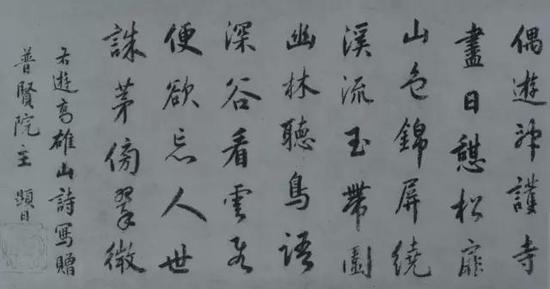 偶遊神護寺
盡日憩松扉
山色錦屏繞
溪流玉帶圍
幽林聽鳥語
深谷看雲飛
便欲忘人世
誅茅傍翠微
右遊高雄山詩寫贈
普賢院主